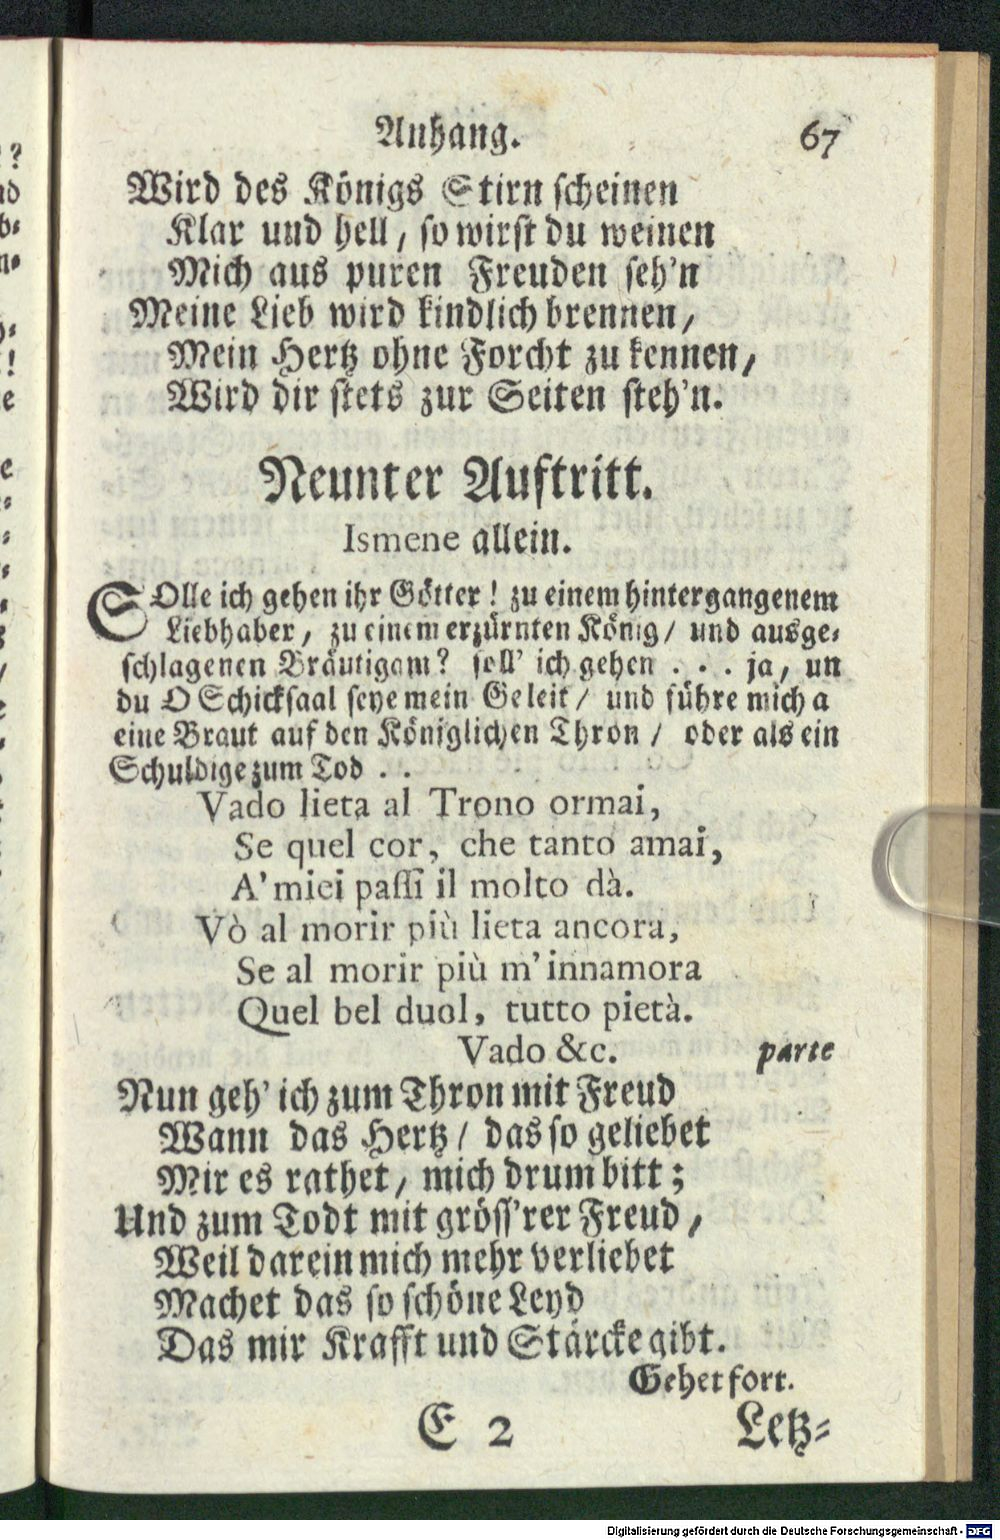 Anhang. 67
Wird des Königs Stirn scheinen
Klar und hell / so wirst du weinen
Mich aus puren Freuden seh'n
Meine Lieb wird kindlich brennen /
Mein Hertz ohne Forcht zu kennen /
Wird dir stets zur Seiten steh'n.
Neunter Auftritt.
Ismene allein.
SOlle ich gehen ihr Götter! zu einem hintergangenem
Liebhaber / zu einem erzürnten König / und ausge-
schlagenen Bräutigam? soll' ich gehen . . . ja, un
du O Schicksaal seye mein Geleit / und führe mich a
eine Braut auf den Königlichen Thron / oder als ein
Schuldige zum Tod . .
Vado lieta al Trono ormai,
Se quel cor, che tanto amai,
A' miei passi il molto dà.
Vò al morir più lieta ancora,
Se al morir più m'innamora
Quel bel duol, tutto pietà.
Vado &c. parte
Nun geh' ich zum Thron mit Freud
Wann das Hertz / das so geliebet
Mir es rathet / mich drum bitt;
Und zum Todt mit gröss'rer Freud /
Weil darein mich mehr verliebet
Machet das so schöne Leyd
Das mir Krafft und Stärcke gibt.
Gehet fort.
E 2 Letz-
Digitalisierung gefördert durch die Deutsche Forschungsgemeinschaft - DFG